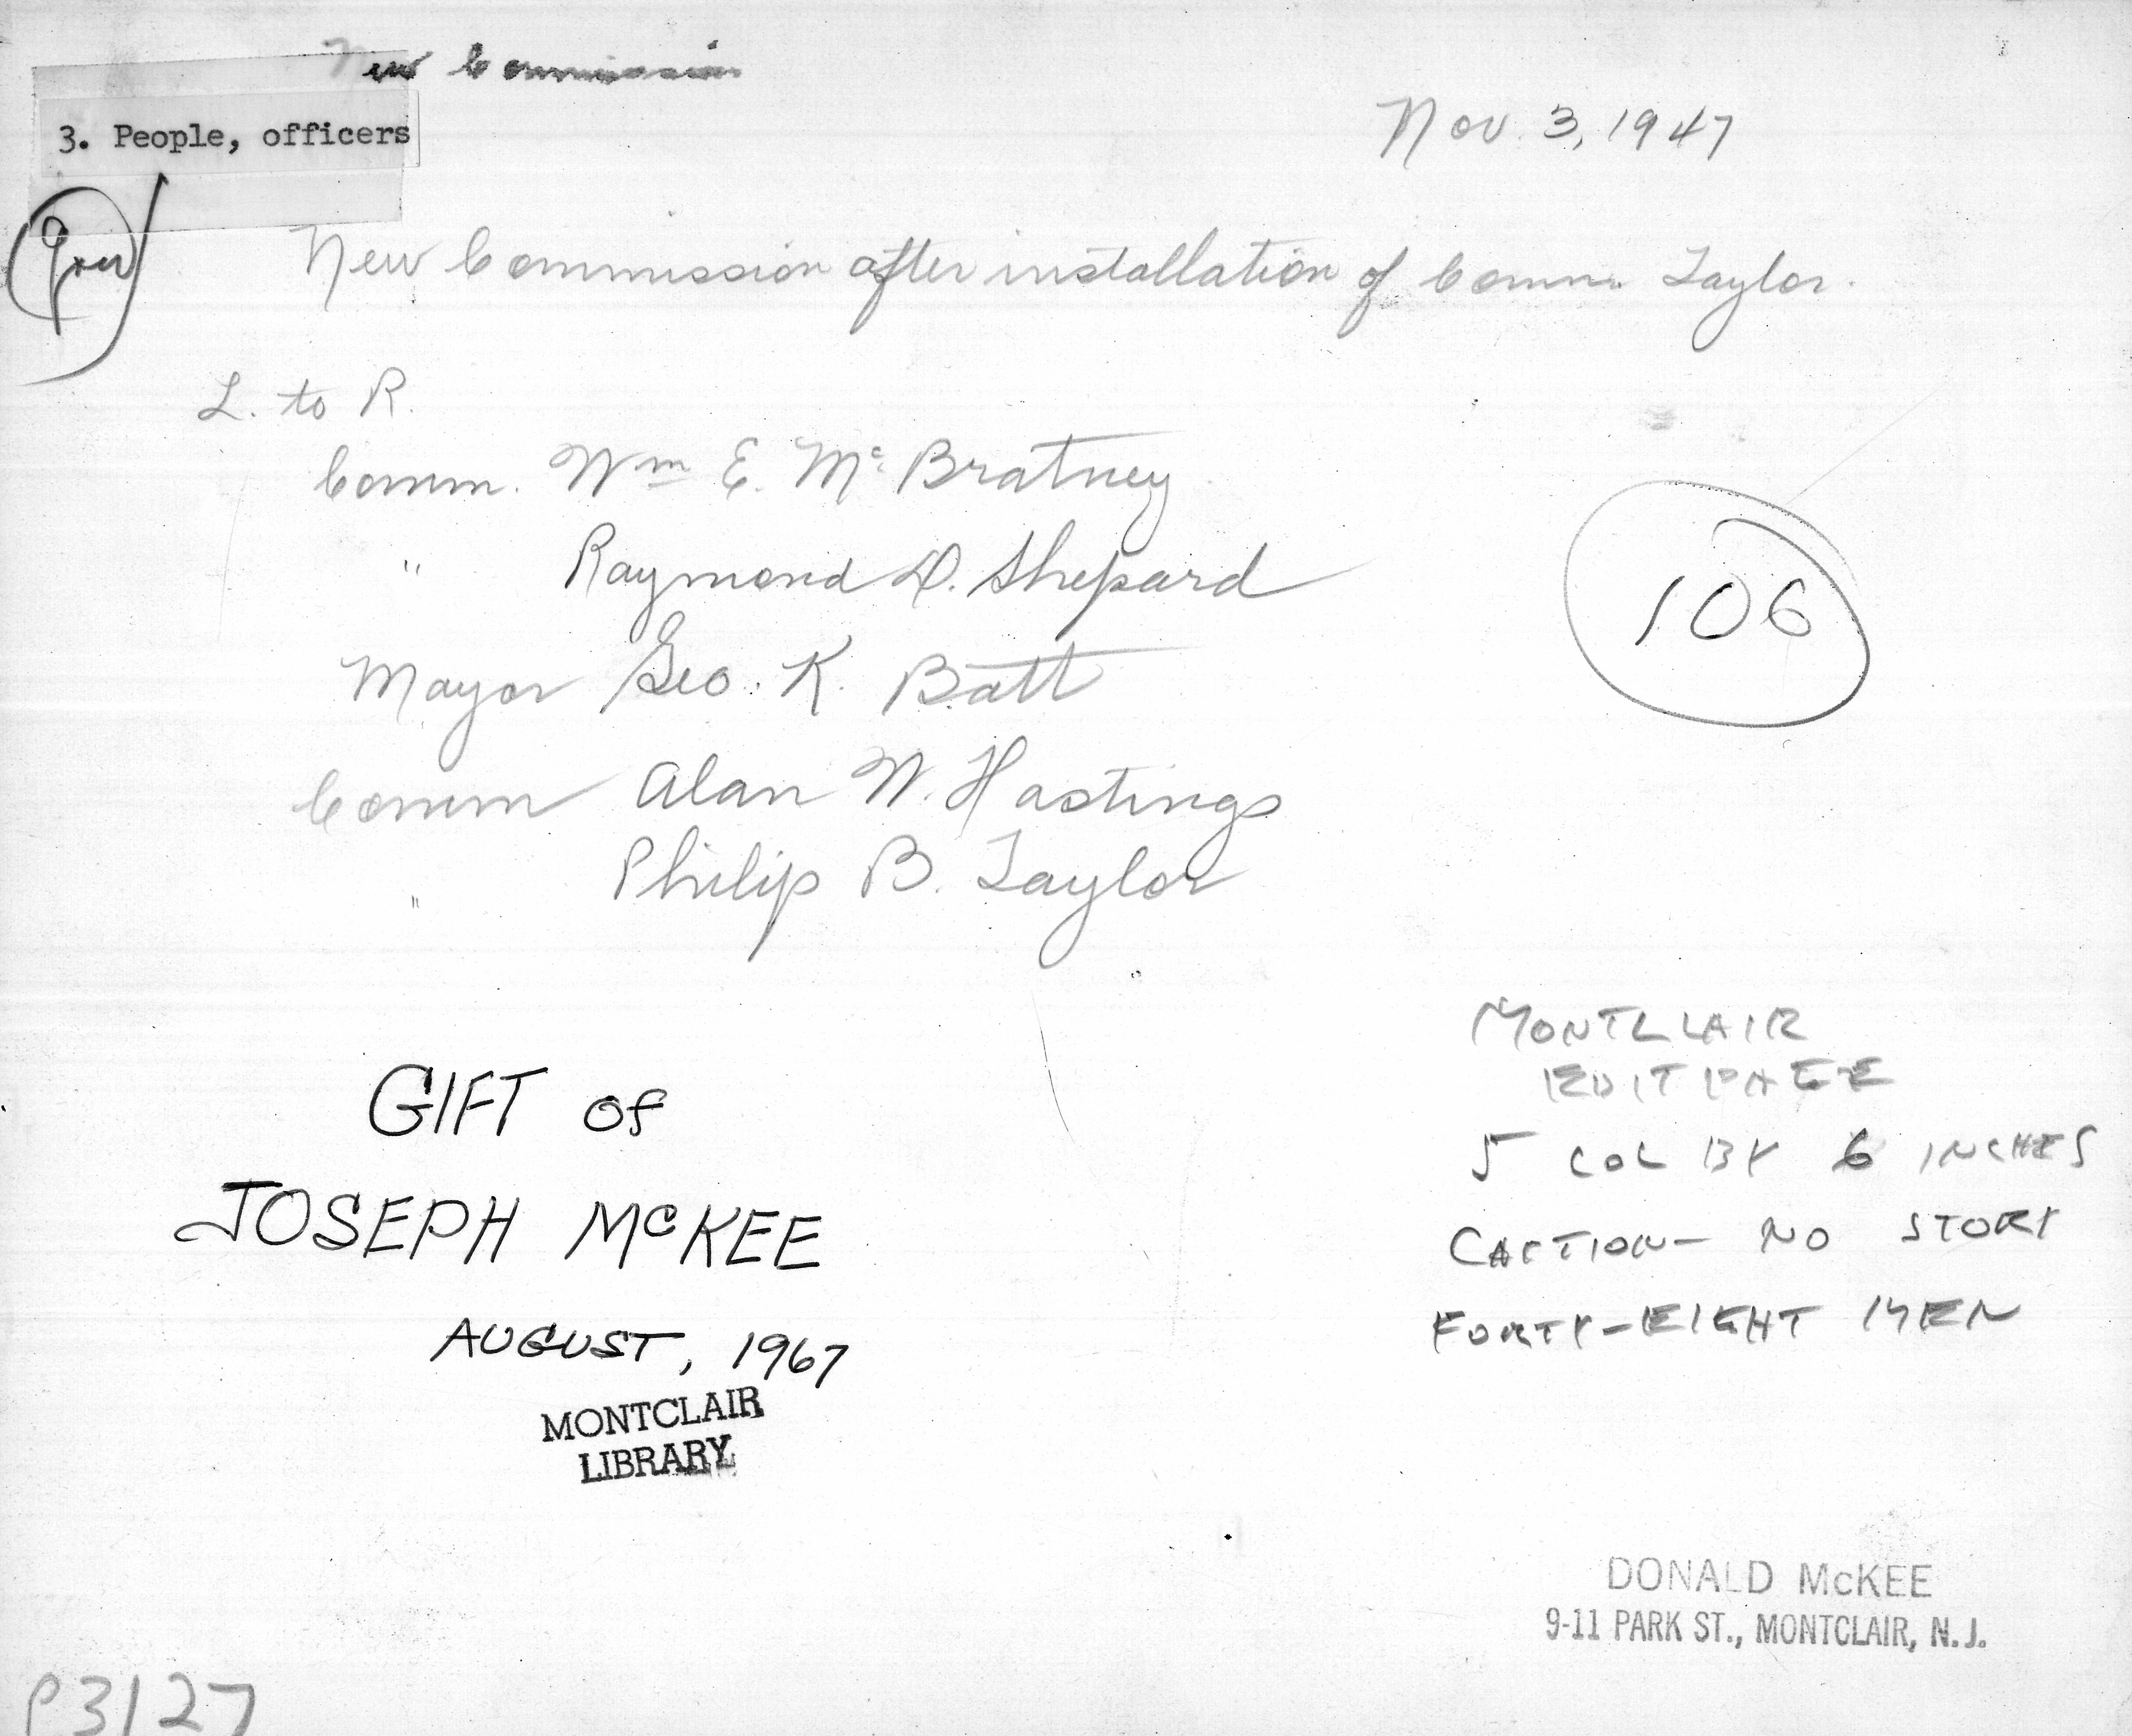 New Commission
3. People, officers
Nov. 3, 1947
Gov
New Commission after installation of Comm. Taylor.
L. to R.
Comm. Wm E. Mc Bratney
" Raymond D. Shepard
Mayor Geo. K. Batt
Comm Alan W. Hastings
" Philip B. Taylor
106
GIFT OF
JOSEPH McKEE
AUGUST, 1967
MONTCLAIR
LIBRARY
MONTCLAIR
EDIT PAGE
5 COL BY 6 INCHES
CAPTION- NO STORY
FORTY-EIGHT MEN
DONALD McKEE
9-11 PARK ST., MONTCLAIR, N.J.
P3127